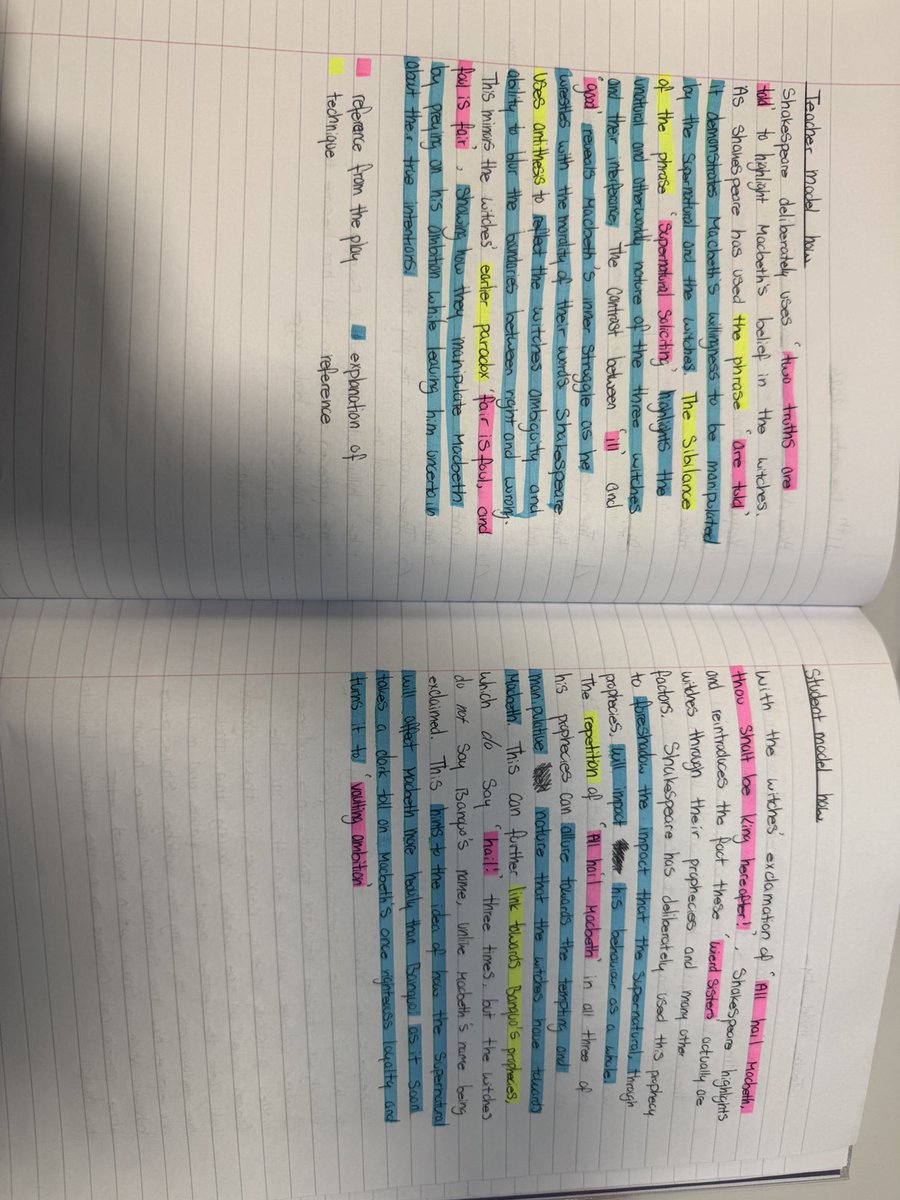 Teacher model how
Shakespeare deliberately uses "two truths are
told" to highlight Macbeth's belief in the witches.
As Shakespeare has used the phrase "are told",
it demonstrates Macbeth's willingness to be manipulated
by the supernatural and the witches. The Sibilance
of the phrase "supernatural soliciting" highlights the
unnatural and otherworldly nature of the three witches
and their interference. The contrast between "ill" and
"good" reveals Macbeth's inner struggle as he
wrestles with the morality of their words. Shakespeare
uses antithesis to reflect the witches ambiguity and
ability to blur the bundaries between right and wrong.
This mirrors the witches' earlier paradox "fair is foul, and
foul is fair", showing how they manipulate Macbeth
by preying on his ambition while leaving him uncertain
about their true intentions.
reference from the play
explanation of
reference
technique
Student model how
With the witches' exclamation of "All hail Macbeth,
thou shalt be king hereafter!", Shakespeare highlights
and reintroduces the fact these "wierd sisters" actually are
witches through their prophecies and many other
factors. Shakespeare has deliberately used this prophecy
to foreshadow the impact that the supernatural, through
prophecies, will impact his behaviour as a whole.
The repetition of "Al hail Macbeth" in all three of
his prophecies can allure towards the tempting and
manipulative nature that the witches have towards
Macbeth. This can further link towards Banquo's prophecies,
which do say "hail!" three times, but the witches
do not say Banquo's name, unlike Macbeth's name being
exclaimed. This hints to the idea of how the supernatural
will affect Macbeth more heavily than Banquo as it soon
takes a dark toll on Macbeth's once righteous loyalty and
turns it to "vaulting ambition"